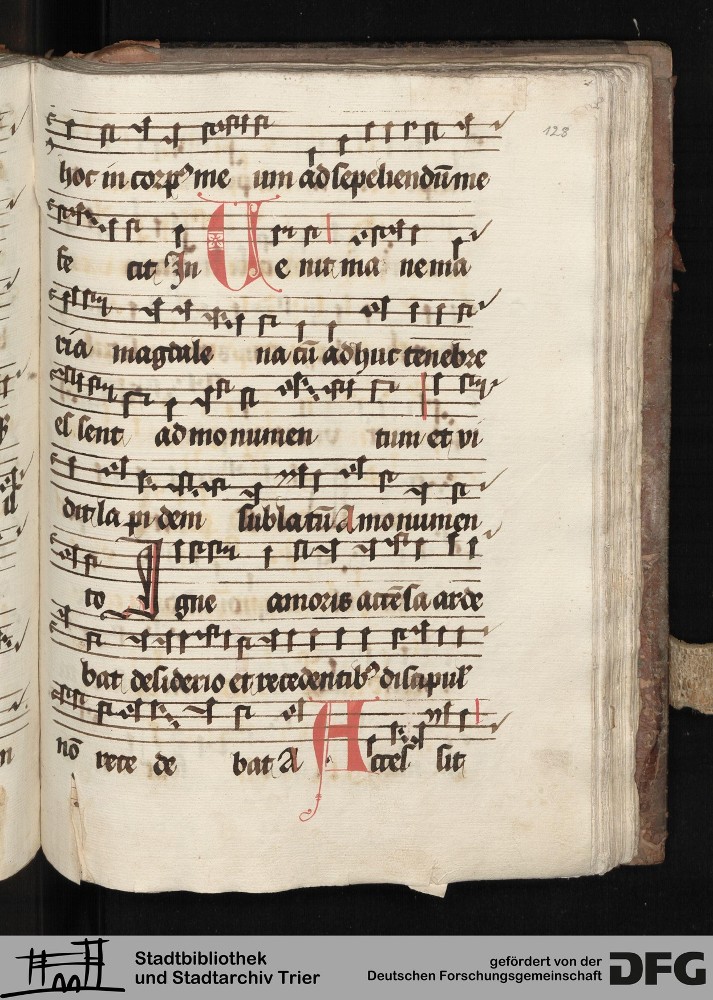 128
hoc in corpꝰ me um ad sepeliendū me
fe cit In Ue nit ma ne ma
ria magdale na cū adhuc tenebre
essent ad mo numen tum et vi
dit la pi dem sublatū A monumen
to Igne amoris accēsa arde
bat desiderio et recedentibꝰ discipul
nō rece de bat A Acces sit
Stadtbibliothek
und Stadtarchiv Trier
gefördert von der
Deutschen Forschungsgemeinschaft
DFG